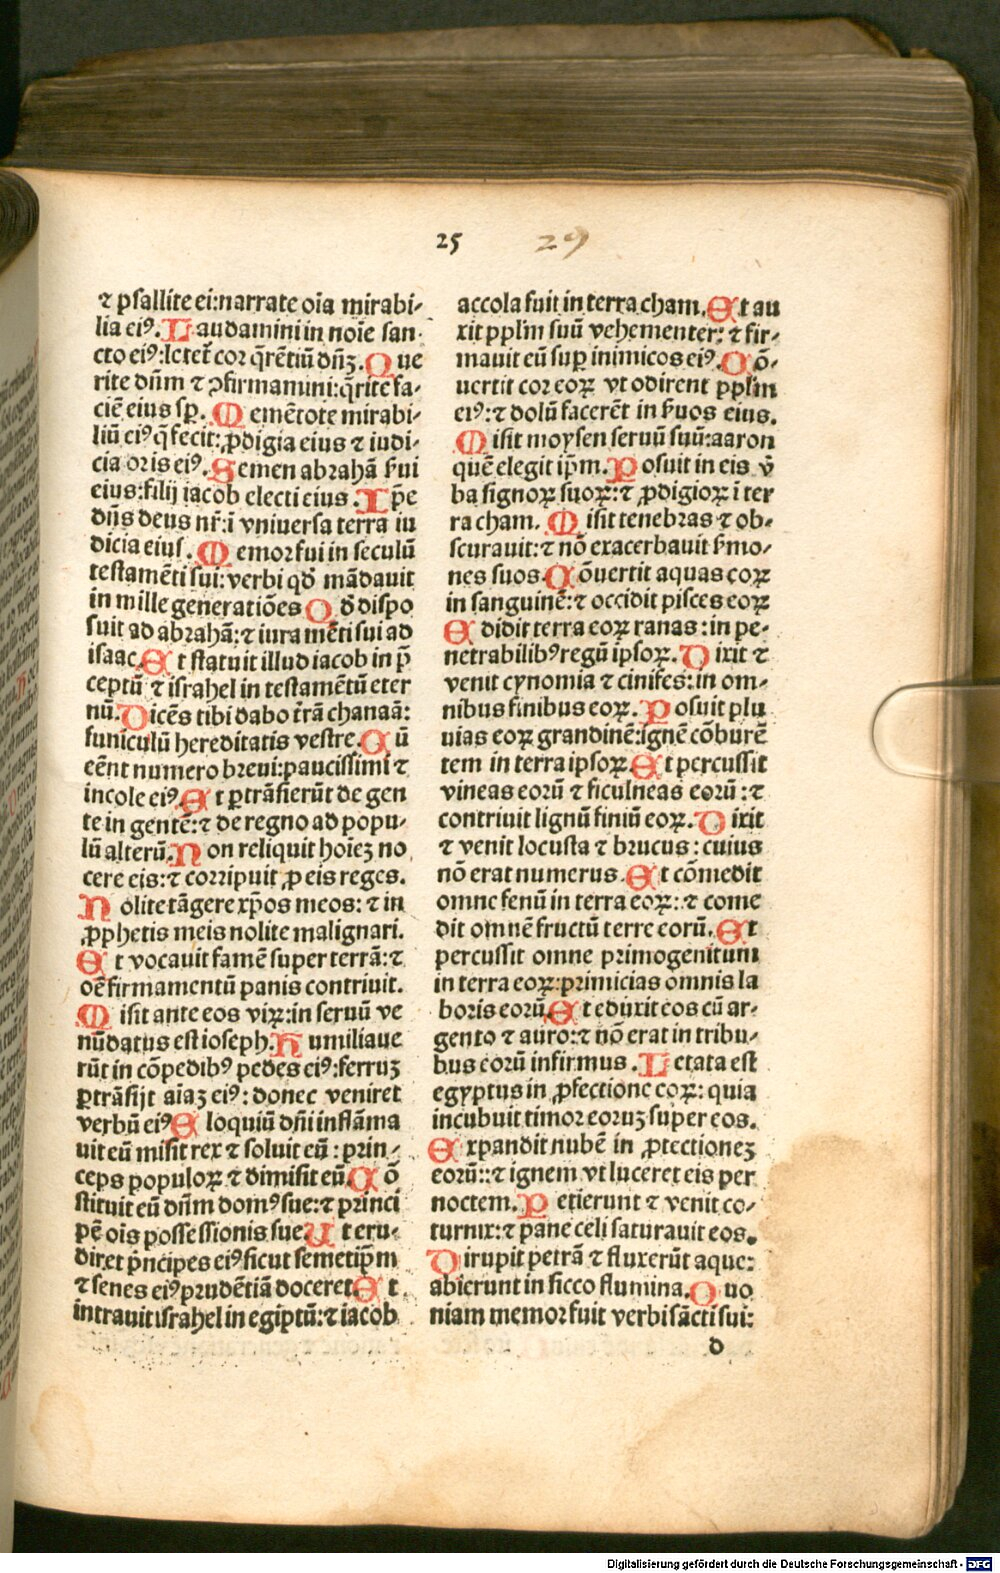 25 29
⁊ psallite ei:narrate oīa mirabi-
lia eiꝰ. Laudamini in noīe san-
cto eiꝰ:letet̄ cor q̄rētiū dn̄ꝫ. Que
rite dn̄m ⁊ ꝯfirmamini:q̄rite fa-
ciē eius sꝑ. Memētote mirabi-
liū eiꝰ q̄ fecit: ꝓdigia eius ⁊ iudi-
cia oris eiꝰ. Semen abrahā ẜui
eius:filij iacob electi eius. Ip̄e
dn̄s deus nr̄:ī vniuersa terra iu
dicia eius. Memor fui in seculū
testamēti sui:verbi qd̄ mādauit
in mille generatiōes Qd̄ dispo
suit ad abrahā:⁊ iuramēti sui ad
isaac. Et statuit illud iacob in p̄
ceptū ⁊ israhel in testamētū eter
nū. Dicēs tibi dabo t̄rā chanaā:
funiculū hereditatis vestre. Cū
eēnt numero breui:paucissimi ⁊
incole eiꝰ. Et ꝑtrāsierūt de gen
te in gentē:⁊ de regno ad popu-
lū alterū. Non reliquit hoīeꝫ no
cere eis:⁊ corripuit ꝓ eis reges.
Nolite tāgere xp̄os meos: ⁊ in
ꝓphetis meis nolite malignari.
Et vocauit famē super terrā:⁊
oē firmamentū panis contriuit.
Misit ante eos viꝝ:in seruū ve
nūdatus est ioseph. Humiliaue
rūt in cōpedibꝰ pedes eiꝰ:ferruꝫ
ꝑtrāsijt aīaꝫ eiꝰ: donec veniret
verbū eiꝰ Eloquiū dn̄i inflāma
uit eū misit rex ⁊ soluit eū : prin-
ceps populoꝝ ⁊ dimisit eū. Cō
stituit eū dn̄m domꝰ sue:⁊ princi
pē oīs possessionis sue Ut eru-
diret pͥncipes eiꝰ sicut semetip̄m
⁊ senes eiꝰ prudētiā doceret. Et
intrauit israhel in egiptū:⁊ iacob
accola fuit in terra cham. Et au
xit ppl̄m suū vehementer: ⁊ fir-
mauit eū suꝑ inimicos eiꝰ. Cō-
uertit cor eoꝝ vt odirent ppl̄m
eiꝰ:⁊ dolū facerēt in ẜuos eius.
Misit moysen seruū suū:aaron
quē elegit ip̄m. Posuit in eis v̄
ba signoꝝ suoꝝ:⁊ ꝓdigioꝝ ī ter
ra cham. Misit tenebras ⁊ ob-
scurauit:⁊ nō exacerbauit ẜmo-
nes suos. Cōuertit aquas eoꝝ
in sanguinē:⁊ occidit pisces eoꝝ
Edidit terra eoꝝ ranas : in pe-
netrabilibꝰ regū ipsoꝝ. Dixit ⁊
venit cynomia ⁊ cinifes: in om-
nibus finibus eoꝝ. Posuit plu
uias eoꝝ grandinē:ignē cōburē
tem in terra ipsoꝝ Et percussit
vineas eorū ⁊ ficulneas eorū :⁊
contriuit lignū finiū eoꝝ. Dixit
⁊ venit locusta ⁊ brucus: cuius
nō erat numerus. Et cōmedit
omne fenū in terra eoꝝ: ⁊ come
dit omnē fructū terre eorū. Et
percussit omne primogenitum
in terra eoꝝ:primicias omnis la
boris eorū Et eduxit eos cū ar-
gento ⁊ auro:⁊ nō erat in tribu-
bus eorū infirmus. Letata est
egyptus in ꝓfectione eoꝝ: quia
incubuit timor eoruꝫ super eos.
Expandit nubē in ꝓtectioneꝫ
eorū::⁊ ignem vt luceret eis per
noctem. Petierunt ⁊ venit co-
turnix:⁊ pane celi saturauit eos.
Dirupit petrā ⁊ fluxerūt aque:
abierunt in sicco flumina. Quo
niam memor fuit verbi sācti sui:
d
Digitalisierung gefördert durch die Deutsche Forschungsgemeinschaft - DFG